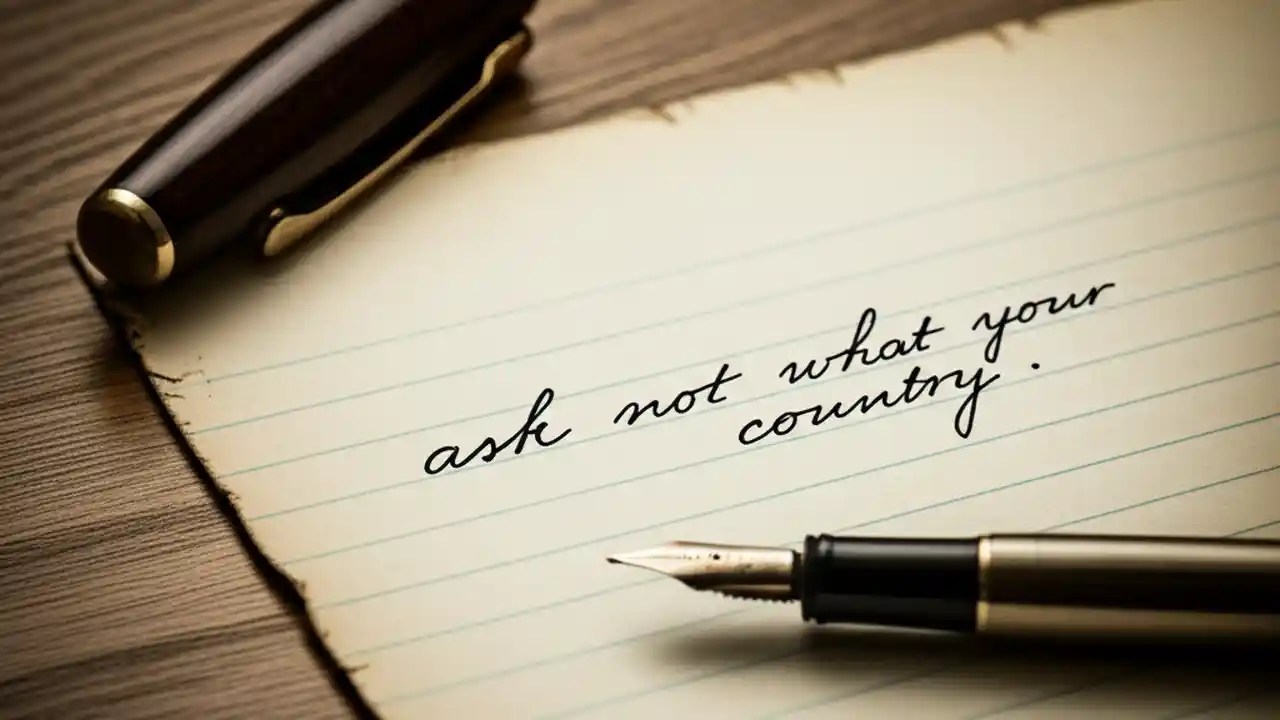 ask not what your
country.